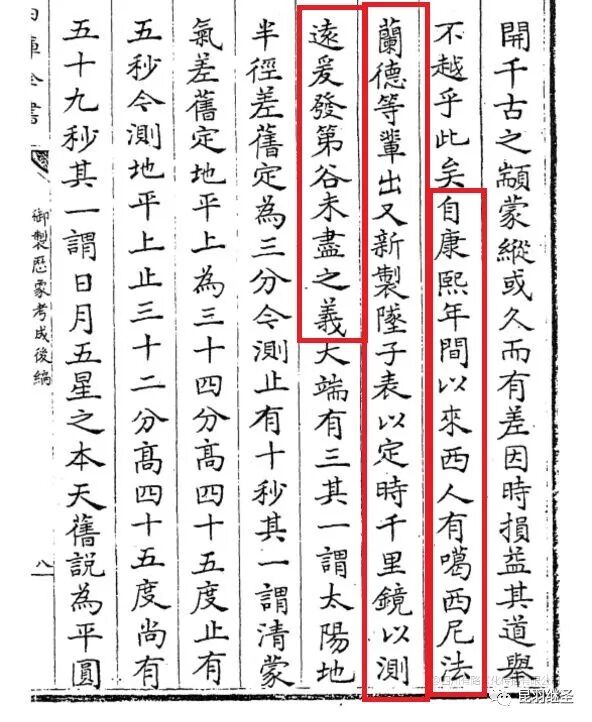 開千古之顓蒙縱或久而有差因時損益其道舉
不越乎此矣自康熙年間以來西人有噶西尼法
蘭德等輩出又新製墜子表以定時千里鏡以測
遠爰發第谷未盡之義大端有三其一謂太陽地
半徑差舊定為三分今測止有十秒其一謂清蒙
氣差舊定地平上為三十四分高四十五度止有
五秒今測地平上止三十二分高四十五度尚有
五十九秒其一謂日月五星之本天舊說為平圓
庫全書
御製厯象考成後編
八
昆羽继圣